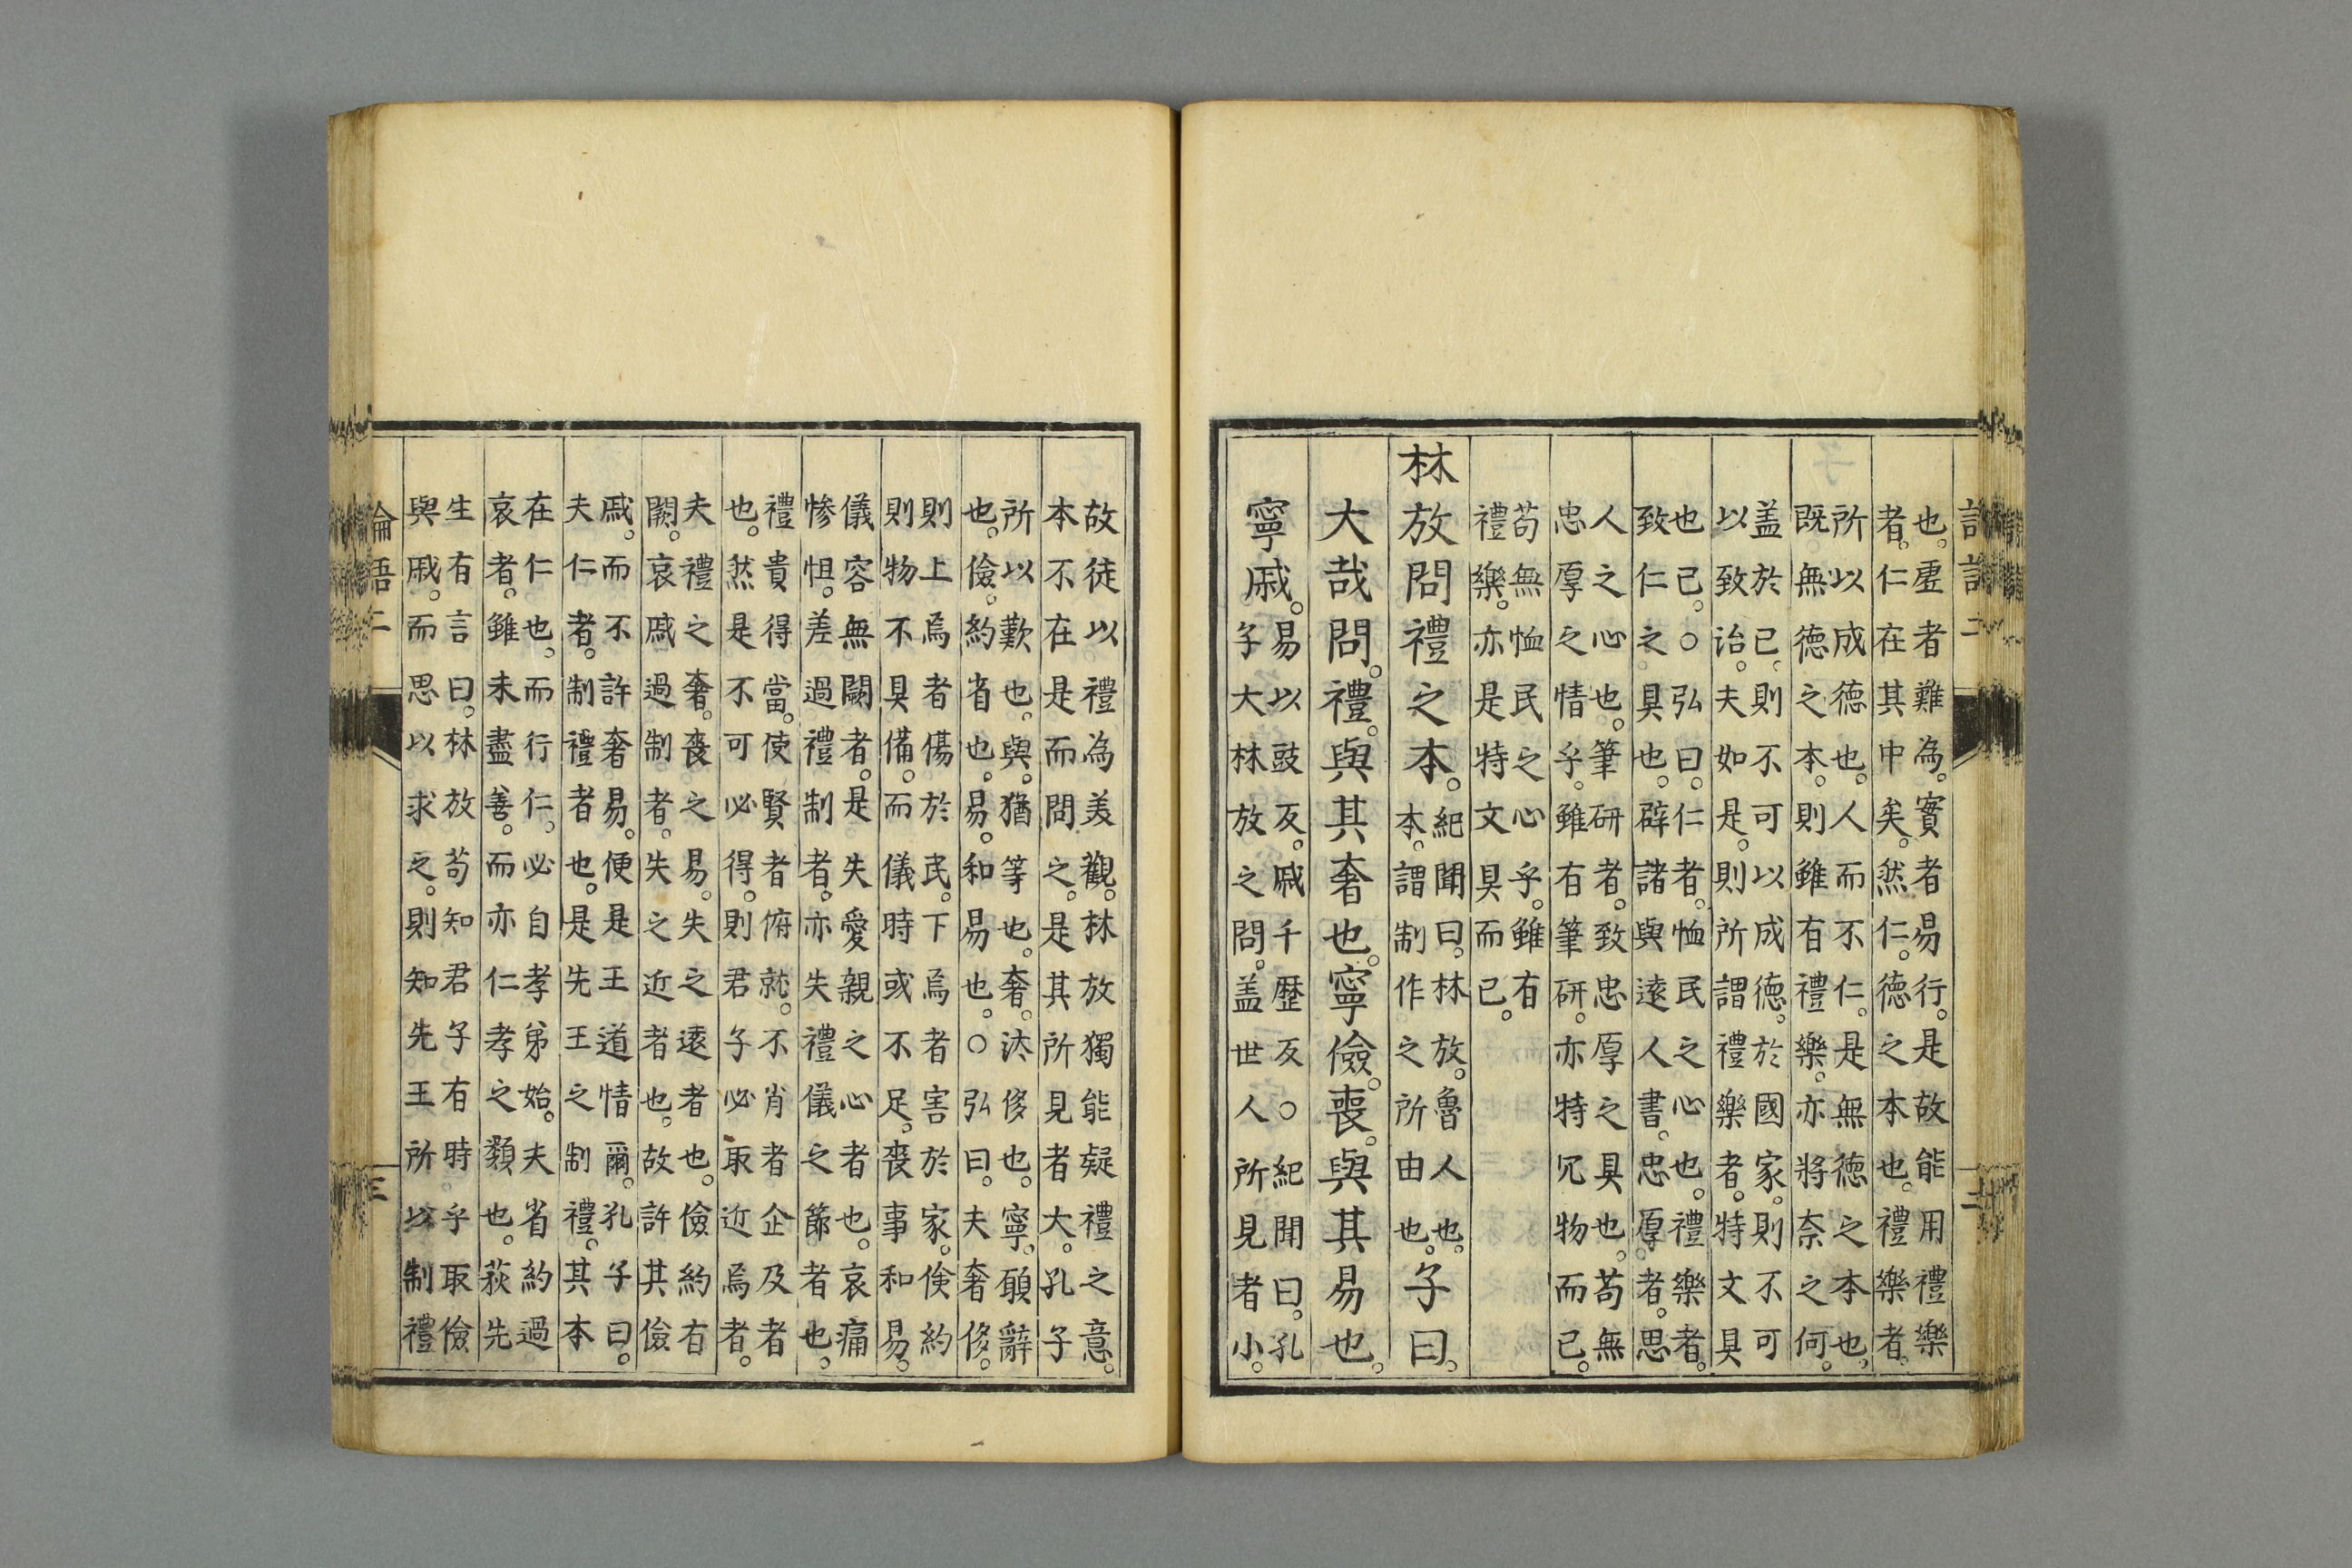 也。虛者難為。實者易行。是故能用禮樂
者。仁在其中矣。然仁。徳之本也。禮樂者。
所以成徳也。人而不仁。是無徳之本也。
既無徳之本。則雖有禮樂。亦将奈之何。
盖於已。則不可以成徳。於國家。則不可
以致治。夫如是。則所謂禮樂者。特文具
也已。○弘曰。仁者。恤民之心也。禮樂者。
致仁之具也。辟諸與遠人書。忠厚者。思
人之心也。筆研者。致忠厚之具也。苟無
忠厚之情乎。雖有筆研。亦特冗物而已。
苟無恤民之心乎。雖有
禮樂。亦是特文具而已。
林放問禮之本。
紀聞曰。林放。魯人也。
本。謂制作之所由也。
子曰。
大哉問。禮。與其奢也。寧儉。喪。與其易也。
寧戚。
易以豉反。戚千歷反。○紀聞曰。孔
子大林放之問。盖世人所見者小。
故徒以禮為美觀。林放獨能疑禮之意。
本不在是而問之。是其所見者大。孔子
所以歎也。與。猶等也。奢。汰侈也。寧。願辭
也。儉。約省也。易。和易也。○弘曰。夫奢侈。
則上焉者傷於民。下焉者害於家。儉約
則物不具備。而儀時或不足。喪事和易。
儀容無闕者。是失愛親之心者也。哀痛
慘怛。差過禮制者。亦失禮儀之節者也。
禮貴得當。使賢者俯就。不肖者企及者
也。然是不可必得。則君子必取近焉者。
夫禮之奢。喪之易。失之遠者也。儉約有
闕。哀戚過制者。失之近者也。故許其儉
戚。而不許奢易。便是王道情爾。孔子曰。
夫仁者。制禮者也。是先王之制禮。其本
在仁也。而行仁。必自孝弟始。夫省約過
哀者。雖未盡善。而亦仁孝之類也。荻先
生有言曰。林放苟知君子有時乎取儉
與戚。而思以求之。則知先王所以制禮
論語二
三